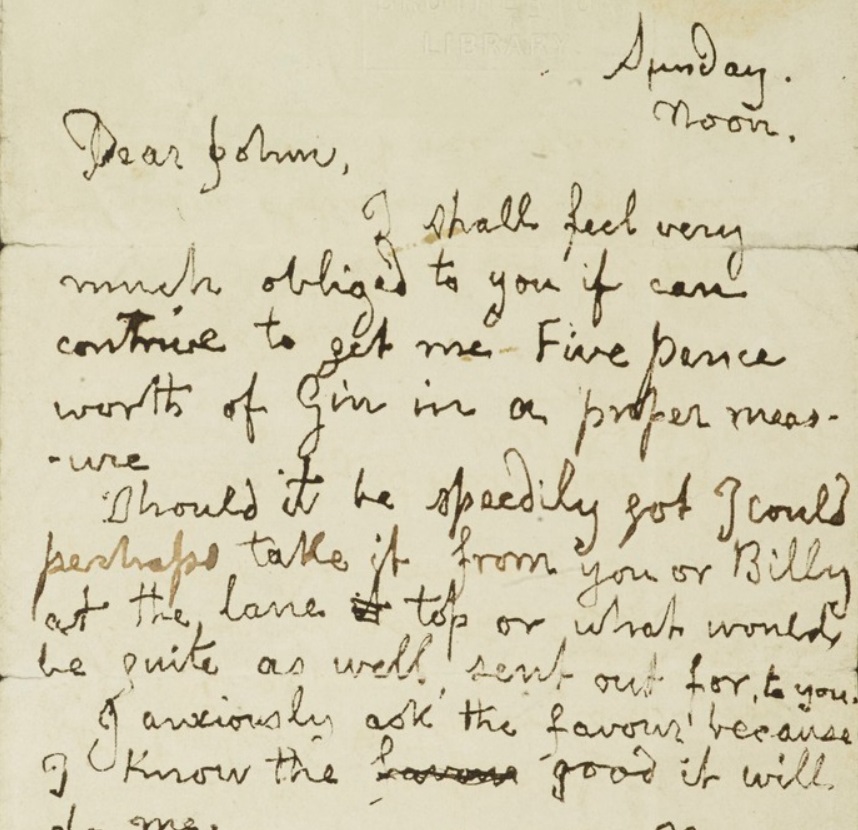 LIBRARY
Sunday.
Noon.
Dear John,
I shall feel very
much obliged to you if can
contrive to get me Five pence
worth of Gin in a proper meas-
-ure
Should it be speedily got I could
perhaps take it from you or Billy
at the lane top or what would
be quite as well, sent out for, to you.
I anxiously ask the favour because
I know the good it will
do me.